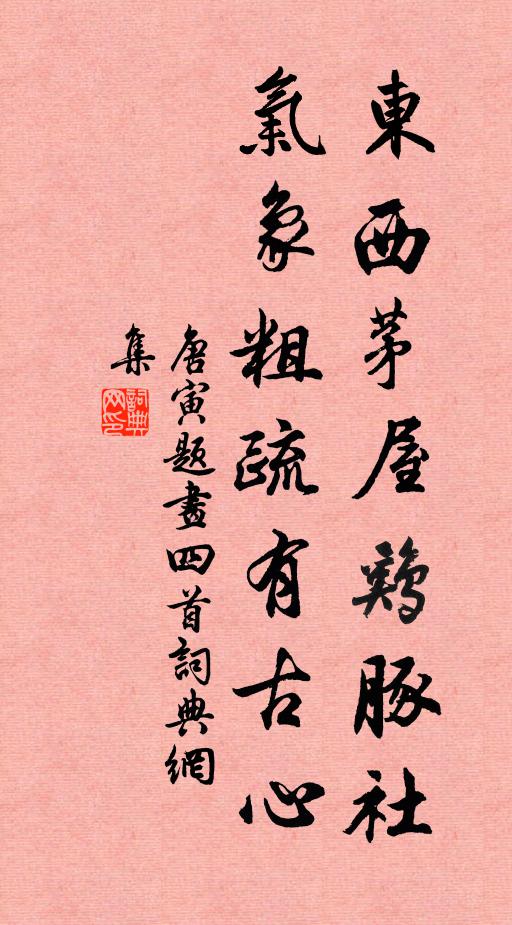 東西茅屋鷄豚社
氣象粗疏有古心
唐寅題畫四首詞典網
集
詞典
網印